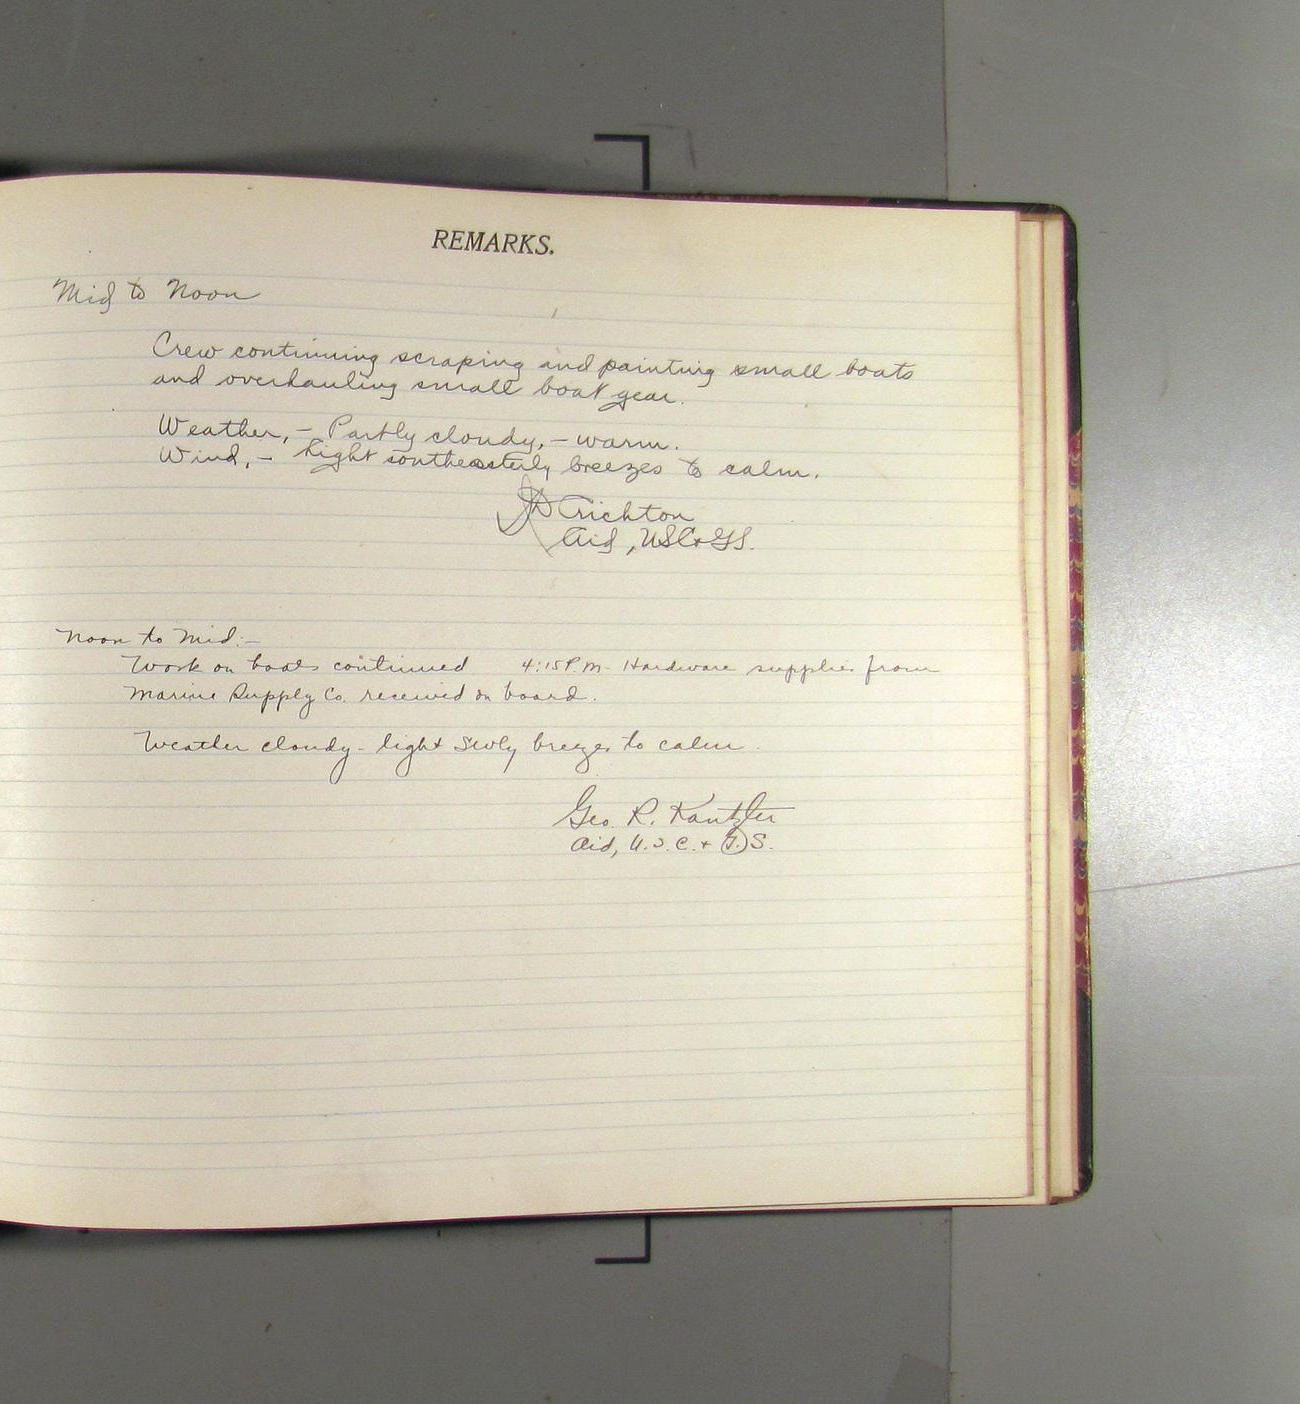 REMARKS.
Mid to Noon
Crew continuing scraping and painting small boats
and overhauling small boat gear.
Weather, - Partly cloudy, - warm.
Wind, - Light southeasterly breezes to calm.
Crichton
Aid, USC&GS.
Noon to Mid:-
Work on boats continued 4:15 P.M. Hardware supplies from
Marine Supply Co. received on board.
Weather cloudy - light SWly breezes to calm.
Geo. R. Kantzler
Aid, U.S.C. & G.S.